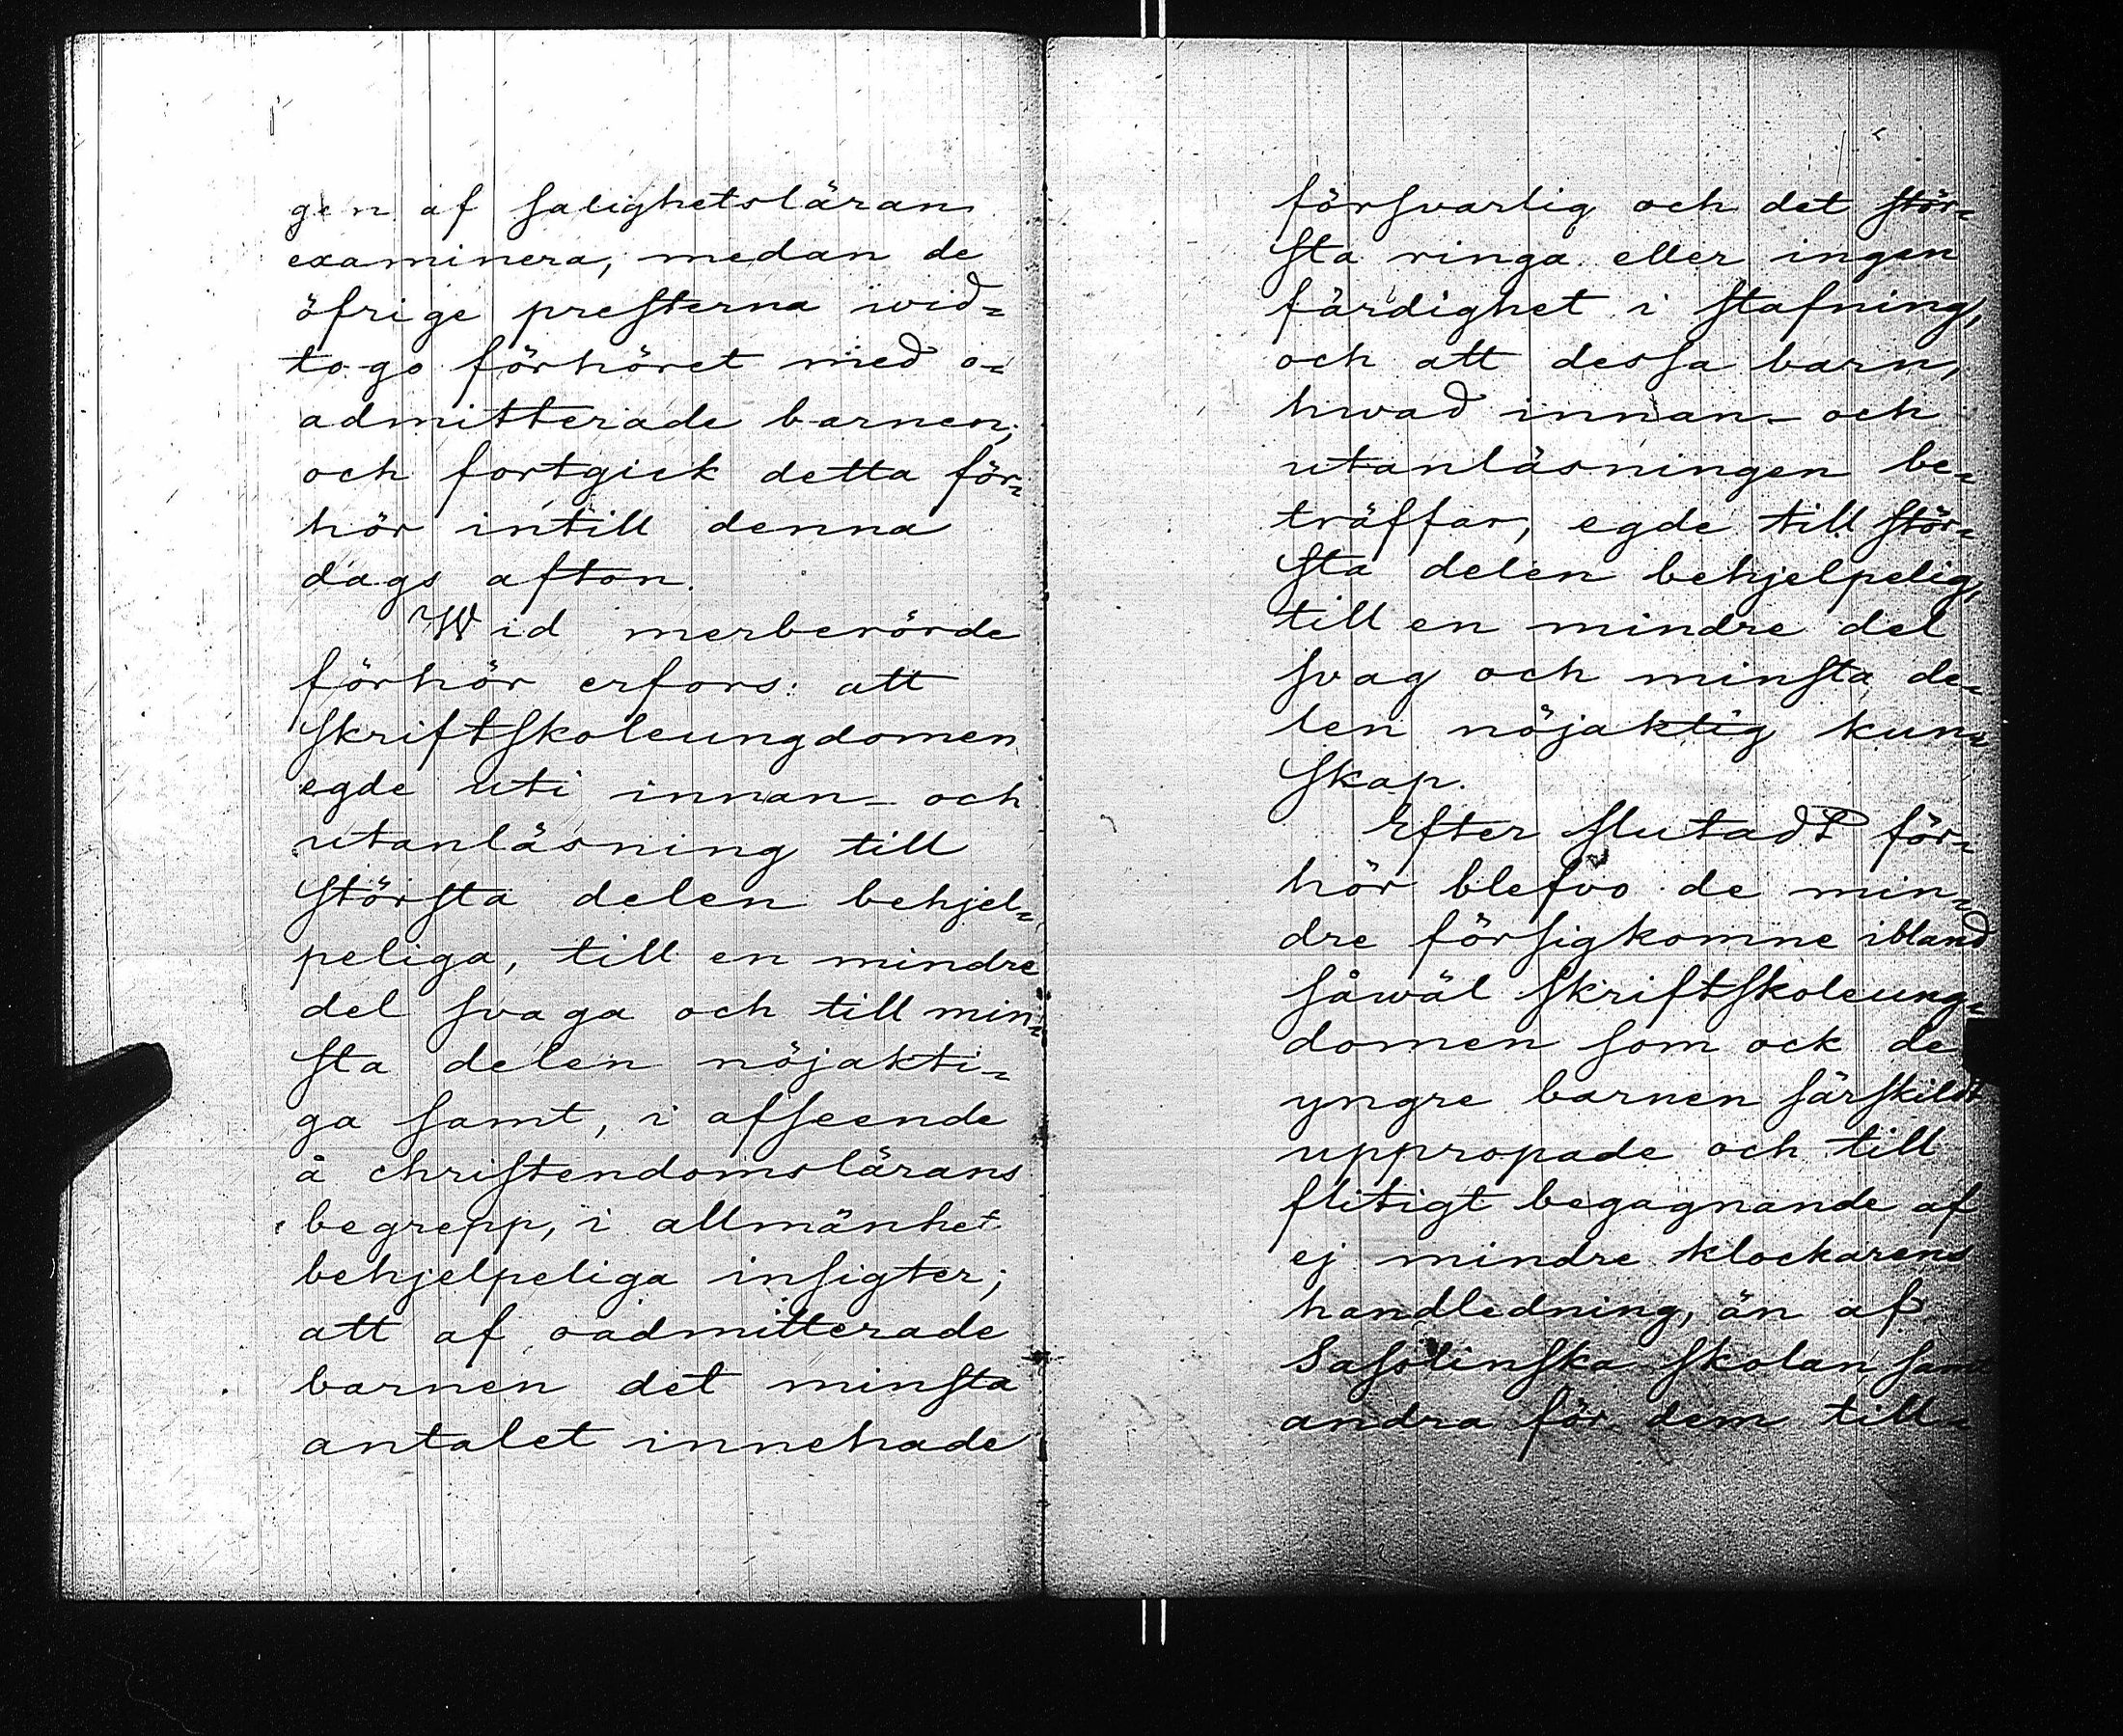 gen af salighetsläran
examinera, medan de
öfrige presterna wid=
togo förhöret med o=
admitterade barnen,
och fortgick detta för=
hör intill denna
dags afton.
Wid merberörde
förhör erfors: att
skriftskoleungdomen
egde uti innan- och
utanläsning till
största delen behjel=
peliga, till en mindre
del svaga och till min=
sta delen nöjakti=
ga samt, i afseende
å christendomslärans
begrepp, i allmänhet
behjelpeliga insigter;
att af oadmitterade
barnen det minsta
antalet innehade
försvarlig och det stör=
sta ringa eller ingen
färdighet i stafning,
och att dessa barn,
hwad innan- och
utanläsningen be=
träffar, egde till stör=
sta delen behjelpelig,
till en mindre del
svag och minsta de=
len nöjaktig kun=
skap.
Efter slutadt för=
hör blefvo de min=
dre försigkomne ibland
såwäl skriftskoleung=
domen som ock de
yngre barnen särskildt
uppropade och till
flitigt begagnande af
ej mindre klockarens
handledning, än af
skolan samt
andra för dem till=